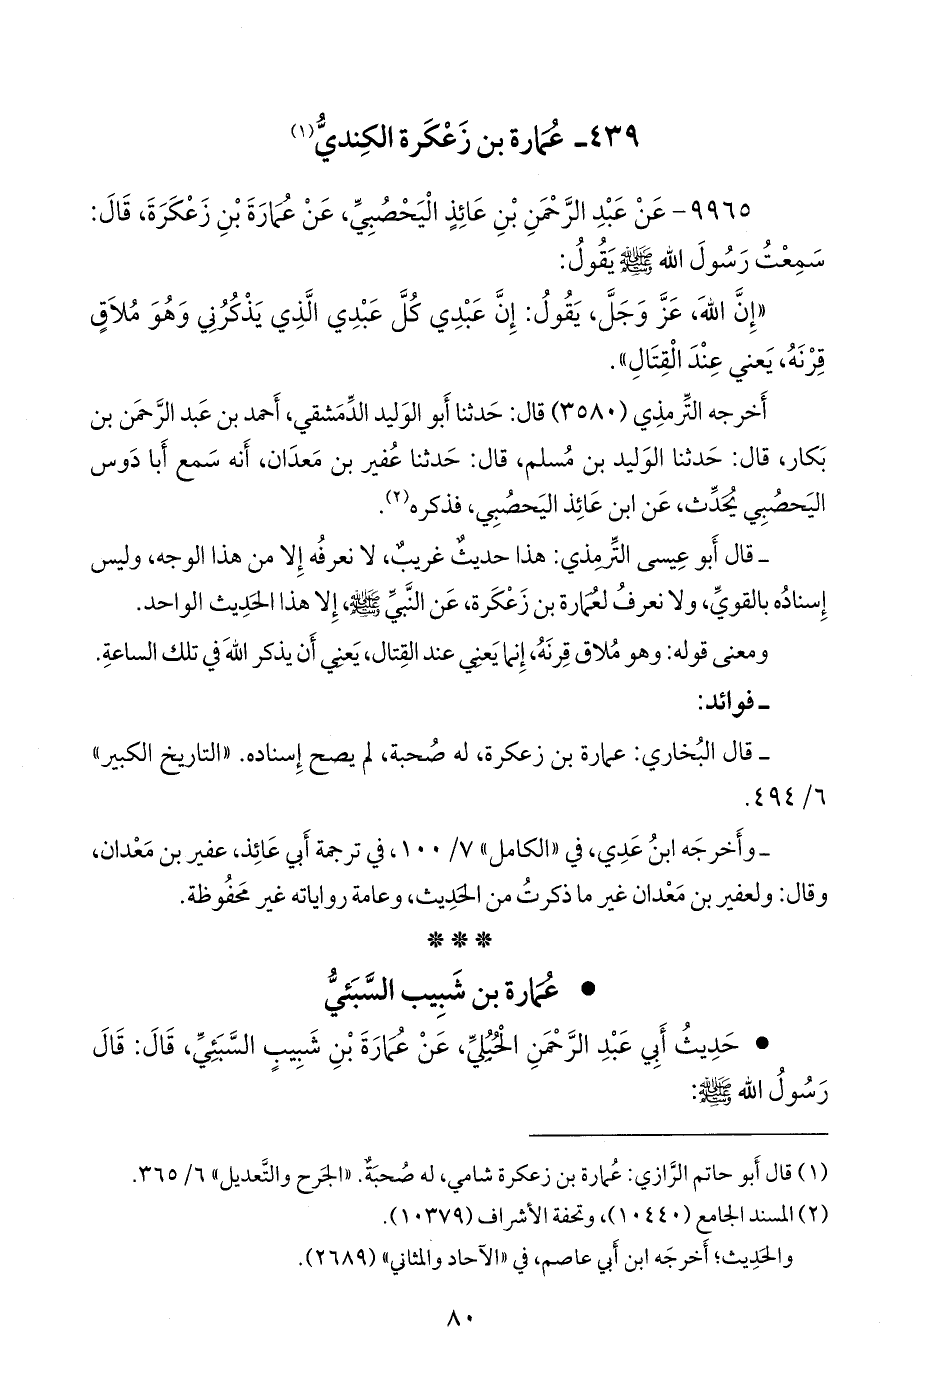 ٤٣٩ـ عُمارة بن زَعْكَرة الكِنديُّ(١)
٩٩٦٥- عَنْ عَبْدِ الرَّحْمَنِ بْنِ عَائِذٍ الْيَحْصُبِيِّ، عَنْ عُمَارَةَ بْنِ زَعْكَرَةَ، قَالَ:
سَمِعْتُ رَسُولَ الله ﷺ يَقُولُ:
«إِنَّ اللهَ، عَزَّ وَجَلَّ، يَقُولُ: إِنَّ عَبْدِي كُلَّ عَبْدِي الَّذِي يَذْكُرُنِي وَهُوَ مُلَاقٍ
قِرْنَهُ، يَعني عِنْدَ الْقِتَالِ».
أَخرجه التِّرمذي (٣٥٨٠) قال: حَدثنا أَبو الوَليد الدِّمَشقي، أَحمد بن عَبد الرَّحمَن بن
بَكار، قال: حَدثنا الوَليد بن مُسلم، قال: حَدثنا عُفير بن مَعدَان، أَنه سَمع أَبا دَوس
اليَحصُبِي يُحَدِّث، عَن ابن عَائِذ اليَحصُبِي، فذكره(٢).
ـ قال أَبو عِيسى التِّرمِذي: هذا حديثٌ غريبٌ، لا نعرفُه إِلا من هذا الوجه، وليس
إِسنادُه بالقويِّ، ولا نعرفُ لعُمارة بن زَعْكَرة، عَن النَّبيِّ ﷺ، إِلا هذا الحَدِيث الواحد.
ومعنى قوله: وهو مُلاق قِرنَهُ، إِنما يَعنِي عند القِتال، يَعنِي أَن يذكر اللهَ في تلك الساعةِ.
ـ فوائد:
ـ قال البُخاري: عمارة بن زعكرة، له صُحبة، لم يصح إِسناده. «التاريخ الكبير»
٦/ ٤٩٤.
ـ وأَخرجَه ابنُ عَدِي، في «الكامل» ٧/ ١٠٠، في ترجمة أَبي عَائِذ، عفير بن مَعْدان،
وقال: ولعفير بن مَعْدان غير ما ذكرتُ من الحَدِيث، وعامة رواياته غير مَحَفُوظة.
* * *
● عُمارة بن شَبِيب السَّبَئيُّ
● حَدِيثُ أَبِي عَبْدِ الرَّحْمَنِ الْحُبُلِيِّ، عَنْ عُمَارَةَ بْنِ شَبِيبٍ السَّبَئِيِّ، قَالَ: قَالَ
رَسُولُ الله ﷺ:
(١) قال أَبو حاتم الرَّازي: عُمارة بن زعكرة شامي، له صُحبَةٌ. «الجَرح والتَّعديل» ٦/ ٣٦٥.
(٢) المسند الجامع (١٠٤٤٠)، وتحفة الأشراف (١٠٣٧٩).
والحَدِيث؛ أَخرجَه ابن أَبي عاصم، في «الآحاد والمثاني» (٢٦٨٩).
٨٠